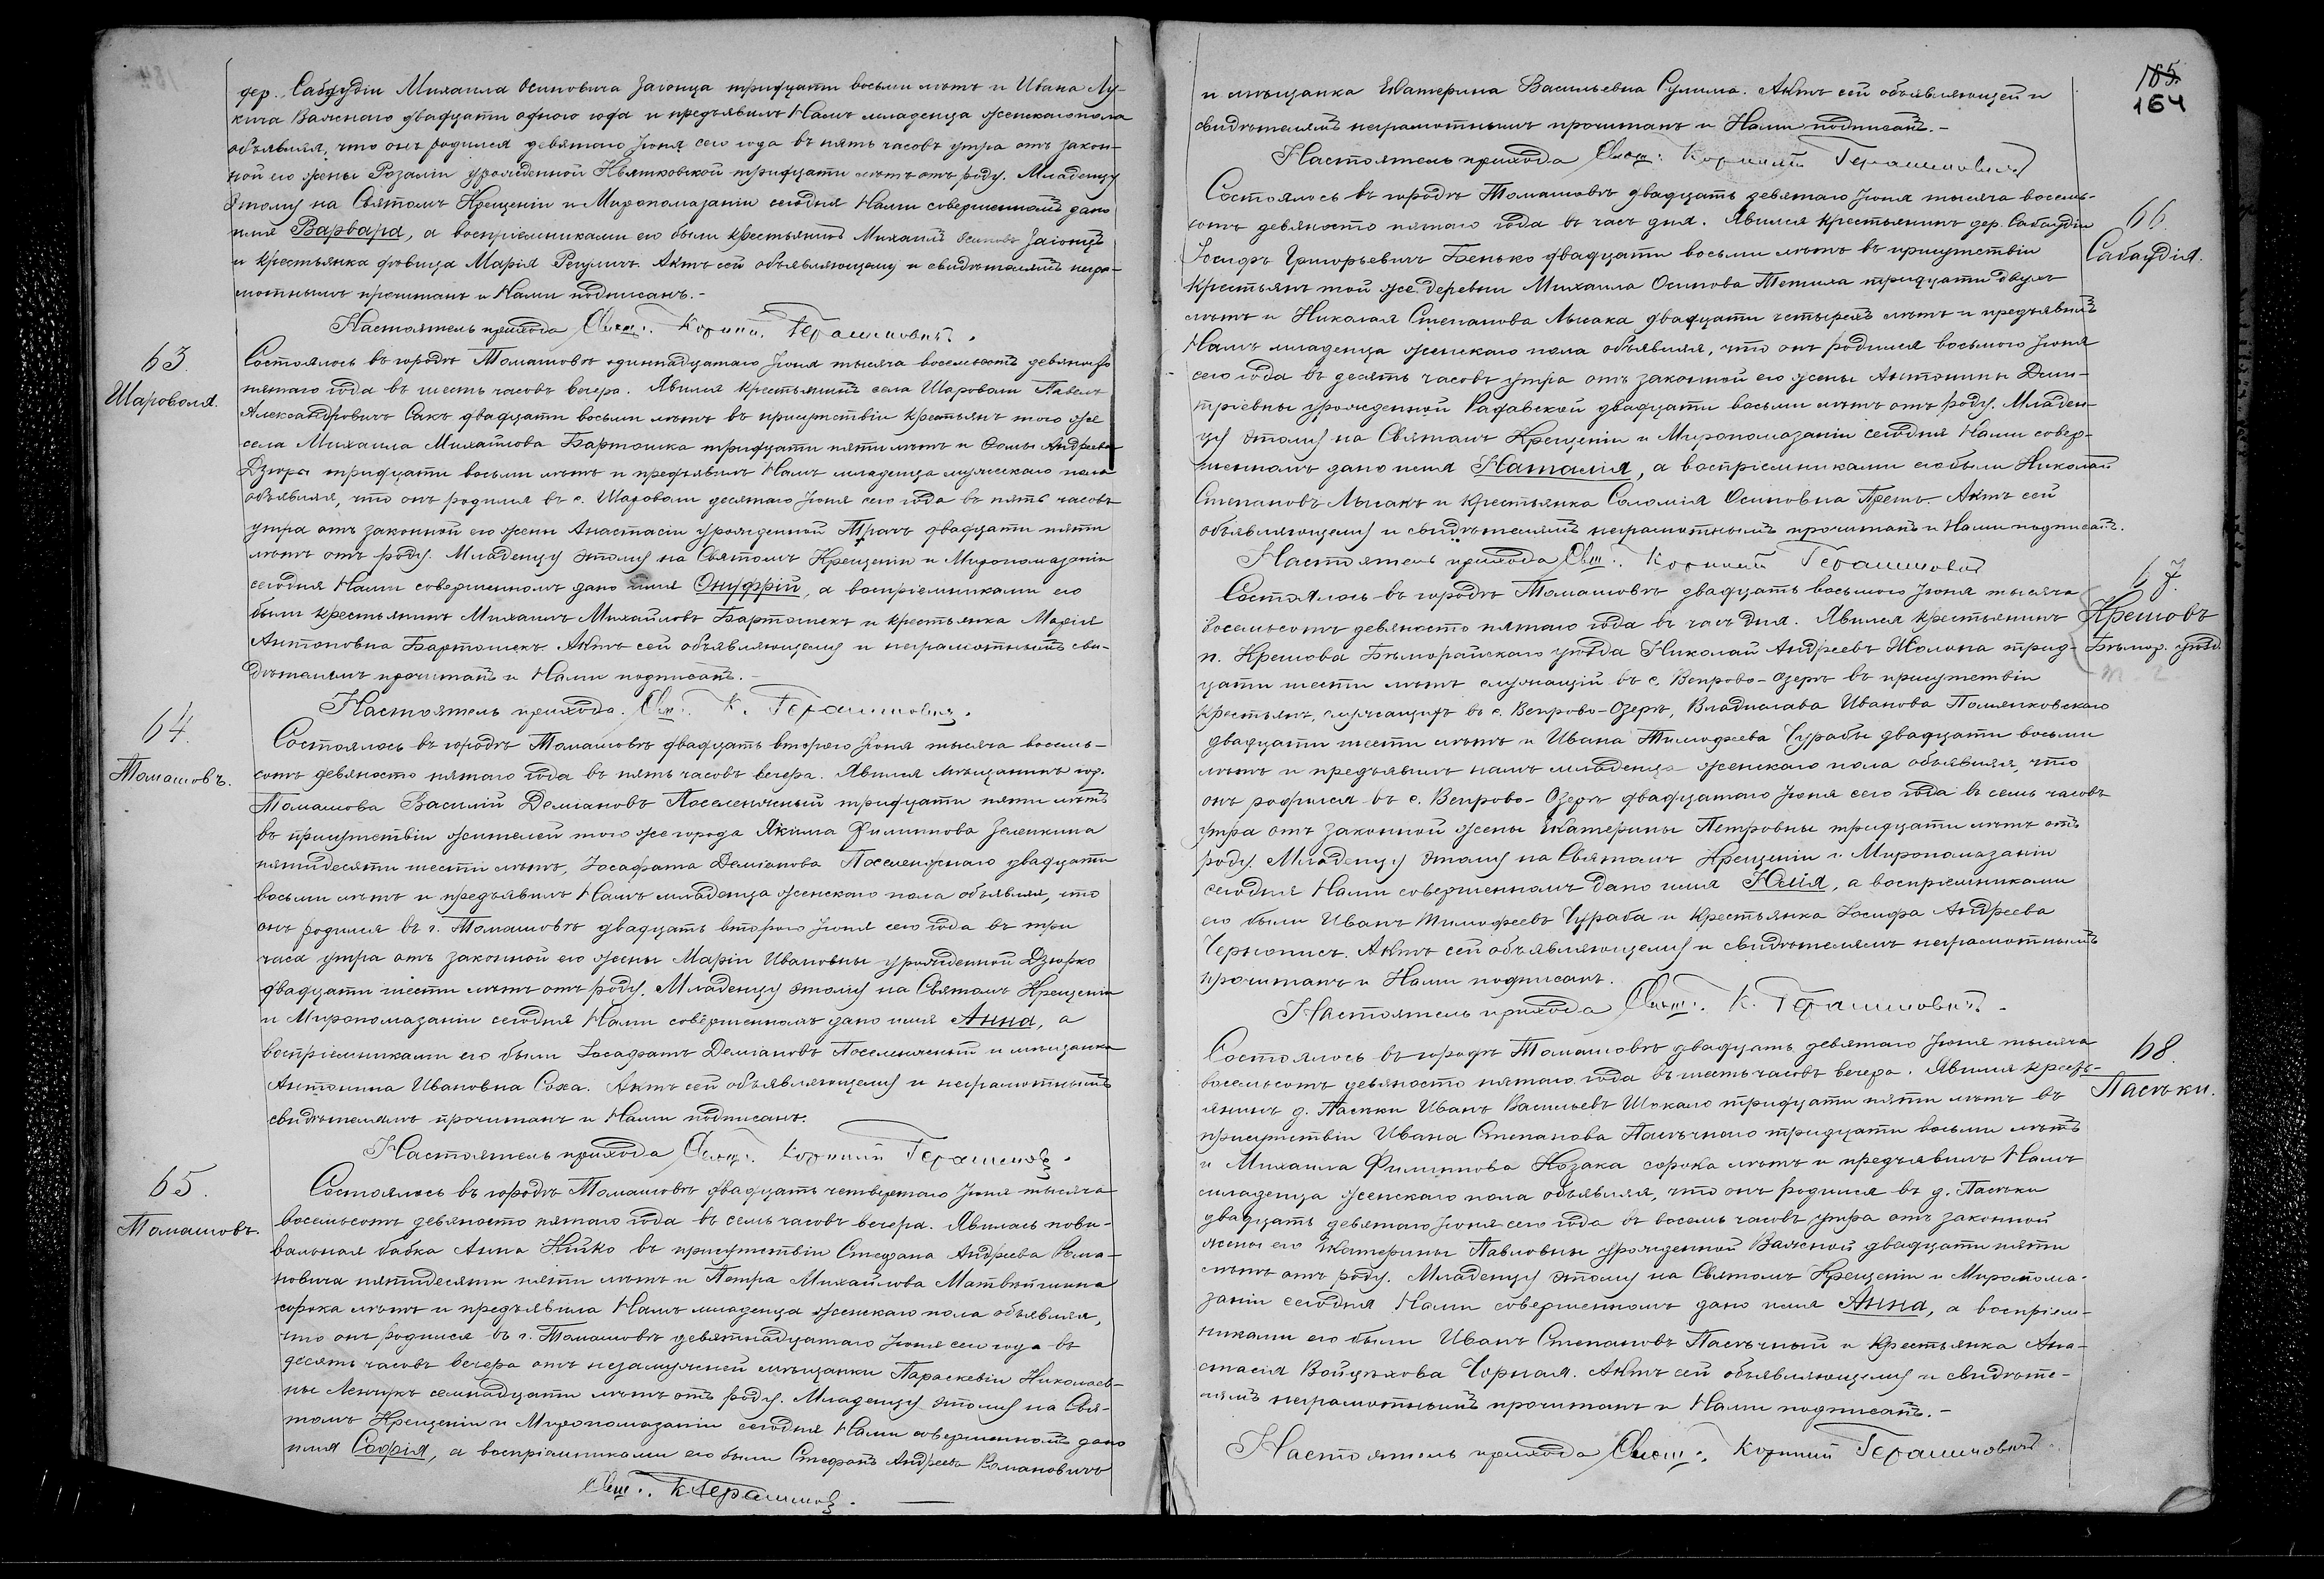 дер. Сабаудіи Михаила Осиповича Заіонца тридцати восьми лѣтъ и Ивана Лу-
кича Важнаго двадцати одного года и предъявилъ Намъ младенца женскаго пола
объявляя, что онъ родился девятаго Іюня сего года въ пять часовъ утра отъ закон-
ной его жены Розаліи урожденной Квятковской тридцати лѣтъ отъ роду. Младенцу
этому на Святомъ Крещеніи и Миропомазаніи сегодня Нами совершенномъ дано
имя Варвара, а воспріемниками его были крестьянинъ Михаилъ Осиповъ Заіонцъ
и крестьянка дѣвица Марія Регулич. Актъ сей объявляющему и свидѣтелямъ негра-
мотнымъ прочитанъ и Нами подписанъ.-
Настоятель прихода Свящ. Корнилій Герашимовичъ.
63.
Шароволя.
Состоялось въ городѣ Томашовѣ одинадцатаго Іюня тысяча восемьсотъ девяносто
пятаго года въ шесть часовъ вечера. Явился крестьянинъ села Шароволи Павелъ
Александровичъ Сакъ двадцати восьми лѣтъ въ присутствіи крестьянъ того же
села Михаила Михайлова Бартошка тридцати пяти лѣтъ и Ѳомы Андреева
Дзюры тридцати восьми лѣтъ и предъявилъ Намъ младенца мужескаго пола
объявляя, что онъ родился въ с. Шароволи десятаго Іюня сего года въ пять часовъ
утра отъ законной его жены Анастасіи урожденной двадцати пяти
лѣтъ отъ роду. Младенцу этому на Святомъ Крещеніи и Миропомазаніи
сегодня Нами совершенномъ дано имя Онуфрій, а воспріемниками его
были крестьянинъ Михаилъ Михайловъ Бартошекъ и крестьянка Марія
Антоновна Бартошекъ. Актъ сей объявляющему и неграмотнымъ сви-
дѣтелямъ прочитанъ и Нами подписанъ.-
Настоятель прихода. Свящ. К. Герашимовичъ.
64.
Томашовъ.
Состоялось въ городѣ Томашовѣ двадцать второго Іюня тысяча восемь-
сотъ девяносто пятаго года въ пять часовъ вечера. Явился мѣщанинъ гор.
Томашова Василій Деміановъ Поселенячный тридцати пяти лѣтъ
въ присутствіи жителей того же города Якима Филиппова Зеленкина
пятидесяти шести лѣтъ, Іосафата Деміанова Поселенячнаго двадцати
восьми лѣтъ и предъявилъ Намъ младенца женскаго пола объявляя, что
онъ родился въ г. Томашовѣ двадцать второго Іюня сего года въ три
часа утра отъ законной его жены Маріи Ивановны урожденной Дзюрко
двадцати шести лѣтъ отъ роду. Младенцу этому на Святомъ Крещеніи
и Миропомазаніи сегодня Нами совершенномъ дано имя Анна, а
воспріемниками его были Іосафатъ Деміановъ Поселенячный и мѣщанка
Антонина Ивановна Соха. Актъ сей объявляющему и неграмотнымъ
свидѣтелямъ прочитанъ и Нами подписанъ.
Настоятель прихода Свящ. Корнилій Герашимовичъ.
65.
Томашовъ.
Состоялось въ городѣ Томашовѣ двадцать четвертаго Іюня тысяча
восемьсотъ девяносто пятаго года въ семь часовъ вечера. Явилась пови-
вальная бабка Анна Кійко въ присутствіи Стефана Андреева Рома-
новича пятидесяти пяти лѣтъ и Петра Михайлова Матвѣйшина
сорока лѣтъ и предъявила Намъ младенца женскаго пола объявляя,
что онъ родился въ г. Томашовѣ девятнадцатаго Іюня сего года въ
десять часовъ вечера отъ незамужней мѣщанки Параскевіи Николаев-
ны Ленчукъ семнадцати лѣтъ отъ роду. Младенцу этому на Свя-
томъ Крещеніи и Миропомазаніи сегодня Нами совершенномъ дано
имя Софія, а воспріемниками его были Стефанъ Андреевъ Романовичъ
Свящ. К. Герашимовичъ.
165.
164
и мѣщанка Екатерина Васильевна Сулима. Актъ сей объявляющей и
свидѣтелямъ неграмотнымъ прочитанъ и Нами подписанъ.-
Настоятель прихода Свящ. Корнилій Герашимовичъ
66.
Сабаудія.
Состоялось въ городѣ Томашовѣ двадцать девятаго Іюня тысяча восемь-
сотъ девяносто пятаго года въ часъ дня. Явился крестьянинъ дер. Сабаудіи
Іосифъ Григорьевичъ Бенько двадцати восьми лѣтъ въ присутствіи
крестьянъ той же деревни Михаила Осипова Тетиха тридцати двухъ
лѣтъ и Николая Степанова Лысака двадцати четырехъ лѣтъ и предъявилъ
Намъ младенца женскаго пола объявляя, что онъ родился восьмого Іюня
сего года въ десять часовъ утра отъ законной его жены Антонины Дими-
тріевны урожденной Радавской двадцати восьми лѣтъ отъ роду. Младен-
цу этому на Святомъ Крещеніи и Миропомазаніи сегодня Нами совер-
шенномъ дано имя Наталія, а воспріемниками его были Николай
Степановъ Лысакъ и крестьянка Соломія Осиповна Претъ. Актъ сей
объявляющему и свидѣтелямъ неграмотнымъ прочитанъ и Нами подписанъ.
Настоятель прихода Свящ. Корнилій Герашимовичъ
67.
Крешовъ
Бѣлгор. уѣзд.
Состоялось въ городѣ Томашовѣ двадцать восьмого Іюня тысяча
восемьсотъ девяносто пятаго года въ часъ дня. Явился крестьянинъ
п. Крешова Бѣлгорайскаго уѣзда Николай Андреевъ Шолопа трид-
цати шести лѣтъ служащій въ с. Вепрово-Озерѣ въ присутствіи
крестьянъ, служащихъ въ с. Вепрово-Озерѣ, Владислава Иванова Помянковскаго
двадцати шести лѣтъ и Ивана Тимофеева Чурабы двадцати восьми
лѣтъ и предъявилъ намъ младенца женскаго пола объявляя, что
онъ родился въ с. Вепрово-Озерѣ двадцатаго Іюня сего года въ семь часовъ
утра отъ законной жены Екатерины Петровны тридцати лѣтъ отъ
роду. Младенцу этому на Святомъ Крещеніи и Миропомазаніи
сегодня Нами совершенномъ дано имя Юлія, а воспріемниками
его были Иванъ Тимофеевъ Чураба и крестьянка Іосифа Андреева
Чернопись. Актъ сей объявляющему и свидѣтелямъ неграмотнымъ
прочитанъ и Нами подписанъ.
Настоятель прихода Свящ. К. Герашимовичъ.
68.
Пасѣки.
Состоялось въ городѣ Томашовѣ двадцать девятаго Іюня тысяча
восемьсотъ девяносто пятаго года въ шесть часовъ вечера. Явился кресть-
янинъ д. Пасѣки Иванъ Васильевъ Шокало тридцати пяти лѣтъ въ
присутствіи Ивана Степанова Пасѣчнаго тридцати восьми лѣтъ
и Михаила Филиппова Козака сорока лѣтъ и предъявилъ Намъ
младенца женскаго пола объявляя, что онъ родился въ д. Пасѣки
двадцать девятаго Іюня сего года въ восемь часовъ утра отъ законной
жены его Екатерины Павловны урожденной Важной двадцати пяти
лѣтъ отъ роду. Младенцу этому на Святомъ Крещеніи и Миропома-
заніи сегодня Нами совершенномъ дано имя Анна, а воспріем-
никами его были Иванъ Степановъ Пасѣчный и крестьянка Ана-
стасія Войцѣхова Чорная. Актъ сей объявляющему и свидѣте-
лямъ неграмотнымъ прочитанъ и Нами подписанъ.-
Настоятель прихода Свящ. Корнилій Герашимовичъ.